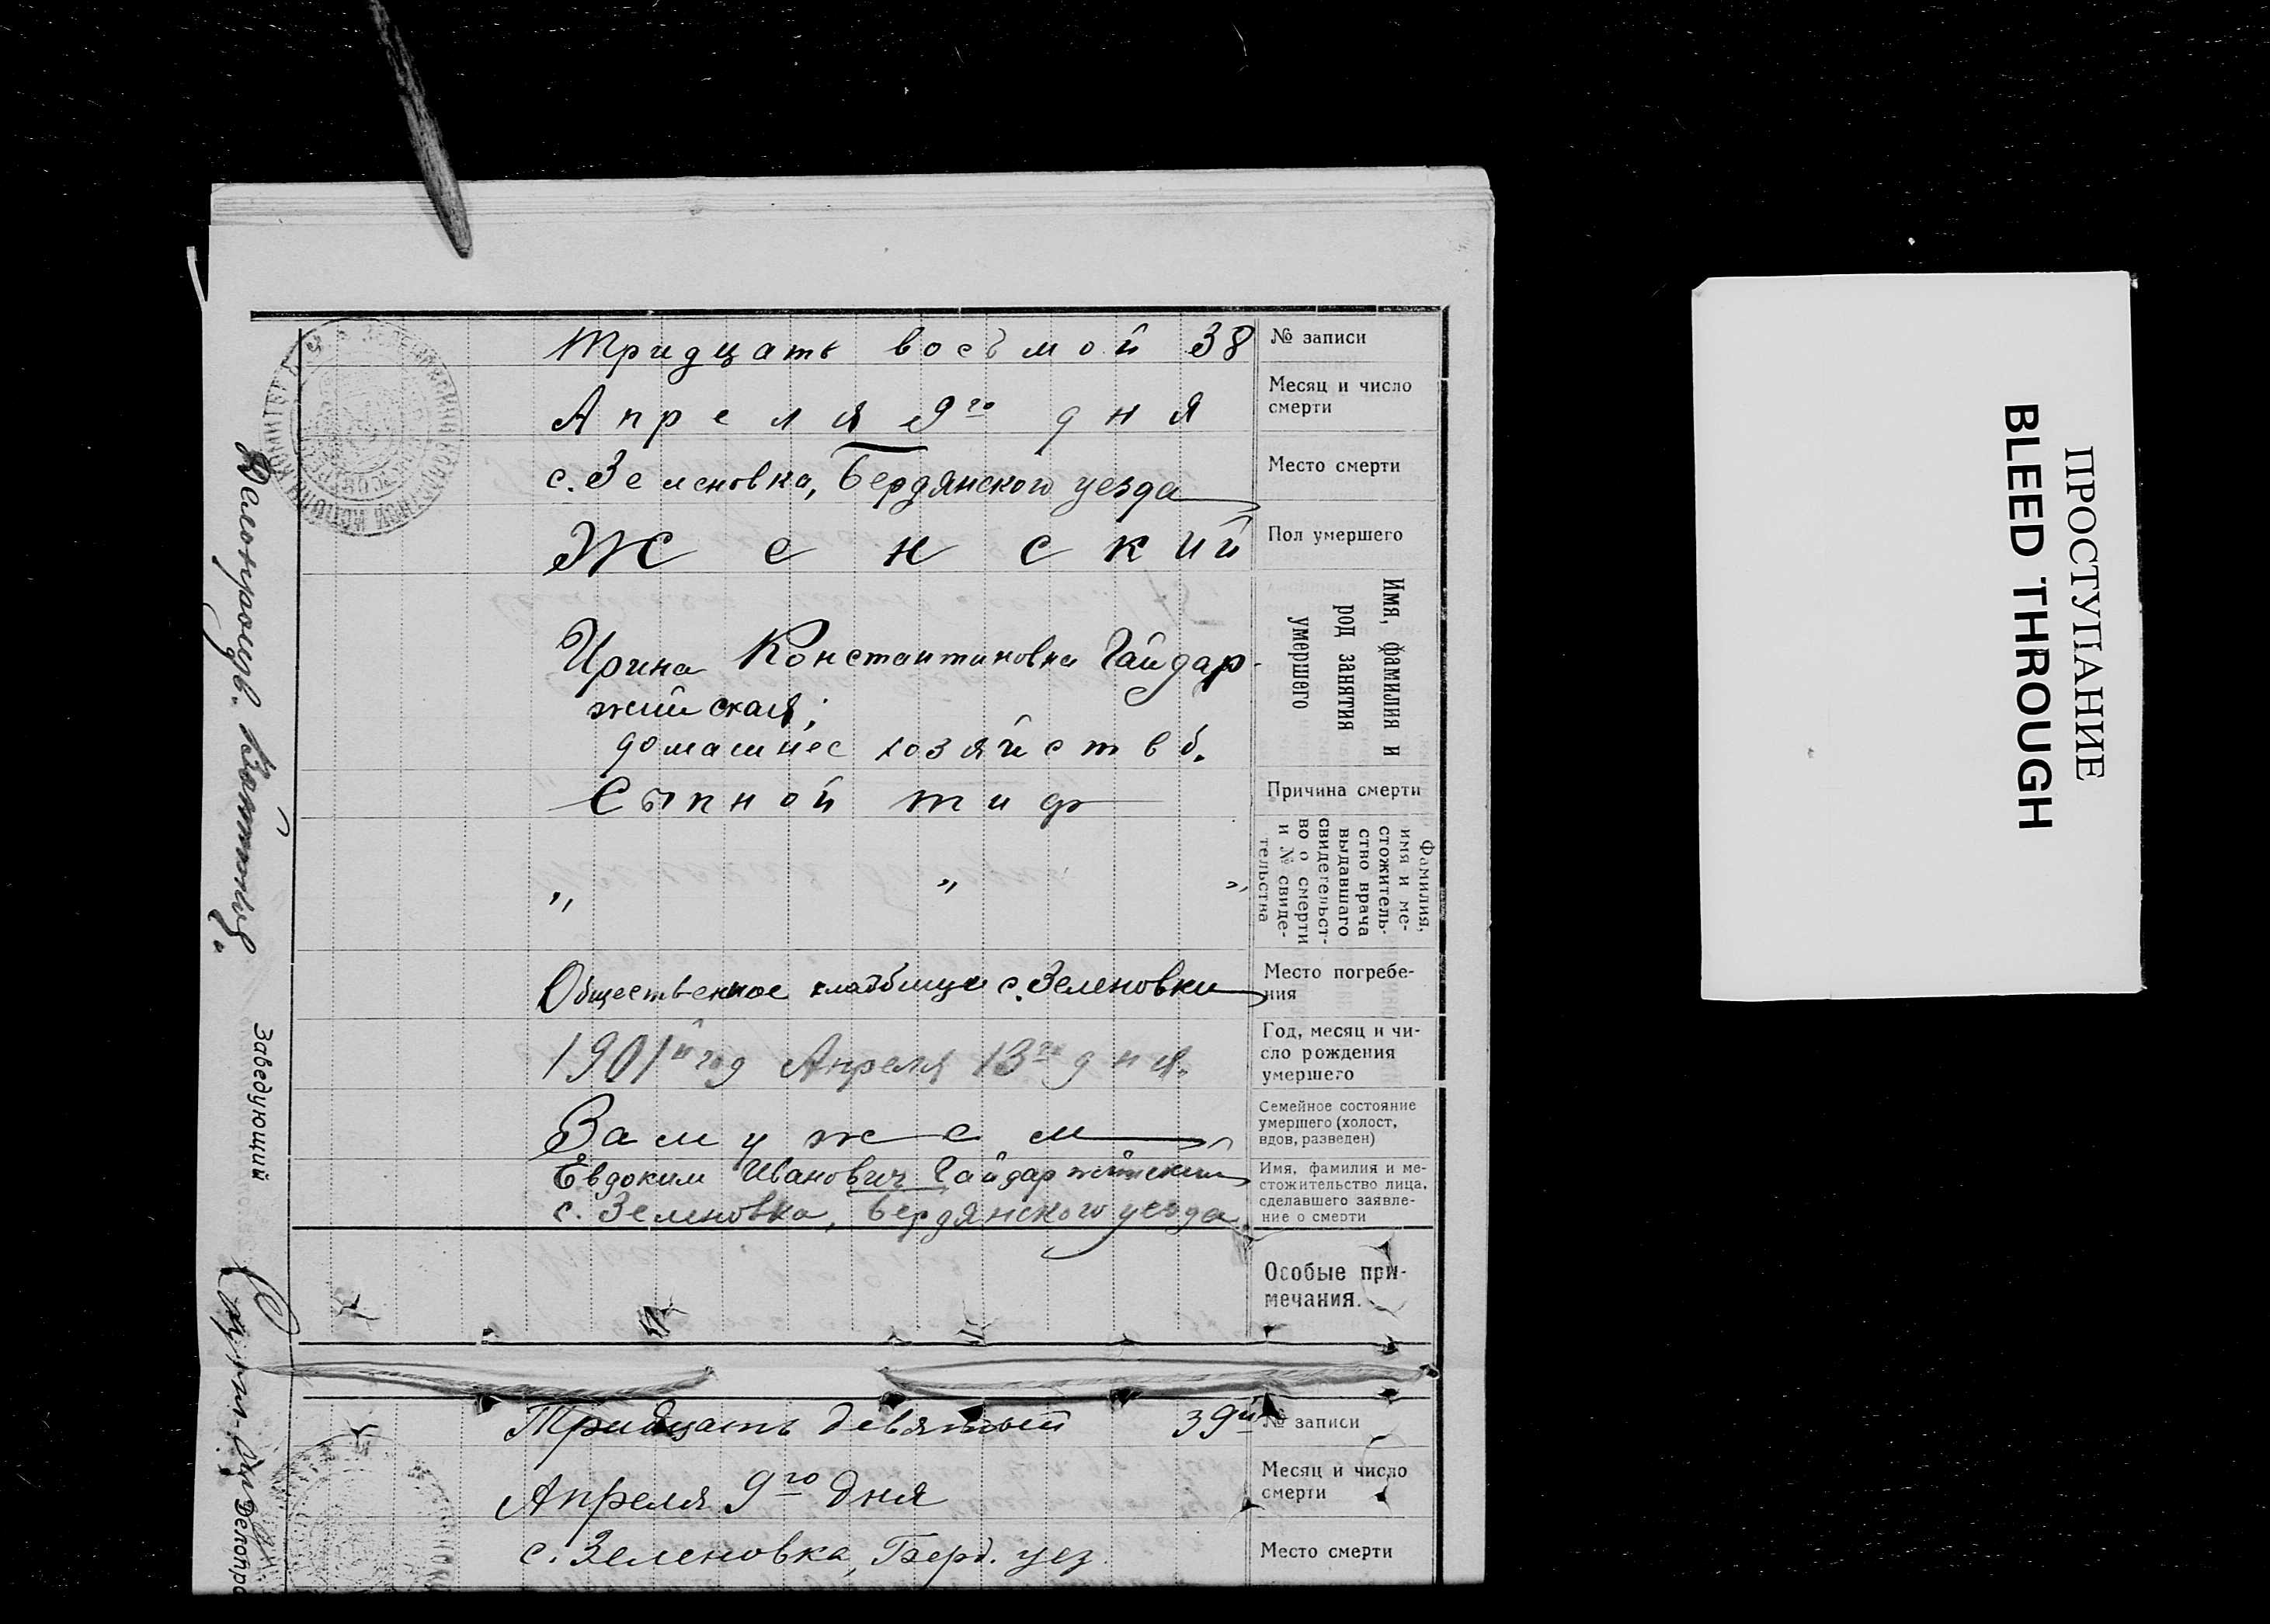 Тридцать восьмой 38
№ записи
Апреля 9го дня
Месяц и число
смерти
с. Зеленовка, Бердянского уезда
Место смерти
Женский
Пол умершего
Ирина Константиновна Гайдар-
жийская;
домашнее хозяйство.
Имя, фамилия и
род занятия
умершего
Сыпной тиф
Причина смерти
„ „ „
Фамилия,
имя и ме-
стожитель-
ство врача
выдавшаго
свидетельст-
во о смерти
и № свиде-
тельства
Общественное кладбище с. Зеленовки
Место погребе-
ния
1901й год Апреля 13го дня.
Год, месяц и чи-
сло рождения
умершего
Замужем
Семейное состояние
умершего (холост,
вдов, разведен)
Евдоким Иванович Гайдаржийский
с. Зеленовка, Бердянского уезда
Имя, фамилия и ме-
стожительство лица,
сделавшего заявле-
ние о смерти
Особые при-
мечания.
Делопроизв.
Заведующий
Тридцать девятый 39й
№ записи
Апреля 9го дня
Месяц и число
смерти
с. Зеленовка, Берд. уез.
Место смерти
Делопро
ПРОСТУПАНИЕ
BLEED THROUGH